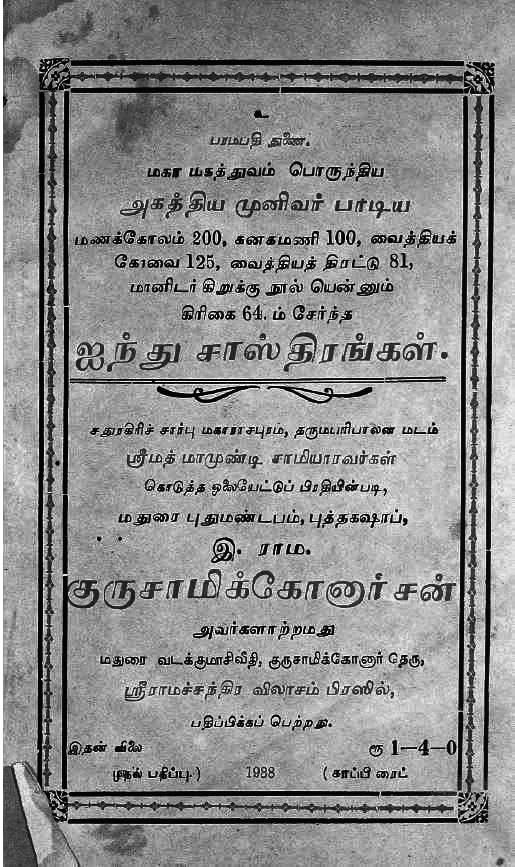 உ
பரமபதி துணை.
மகா மகத்துவம் பொருந்திய
அகத்திய முனிவர் பாடிய
மணக்கோலம் 200, கனகமணி 100, வைத்தியக்
கோவை 125, வைத்தியத் திரட்டு 81,
மானிடர் கிறுக்கு நூல் யென்னும்
கிரிகை 64. ம் சேர்ந்த
ஐந்து சாஸ்திரங்கள்.
சதுரகிரிச் சார்பு மகாராசபுரம், தருமபரிபாலன மடம்
ஸ்ரீமத் மாமுண்டி சாமியாரவர்கள்
கொடுத்த ஓலையேட்டுப் பிரதியின்படி,
மதுரை புதுமண்டபம், புத்தகஷாப்,
இ. ராம.
குருசாமிக்கோனார் சன்
அவர்களாற்றமது
மதுரை வடக்குமாசிவீதி, குருசாமிக்கோனார் தெரு,
ஸ்ரீராமச்சந்திர விலாசம் பிரஸில்,
பதிப்பிக்கப் பெற்றது.
இதன் விலை ரூ 1-4-0
முதல் பதிப்பு.) 1988 (காப்பி ரைட்